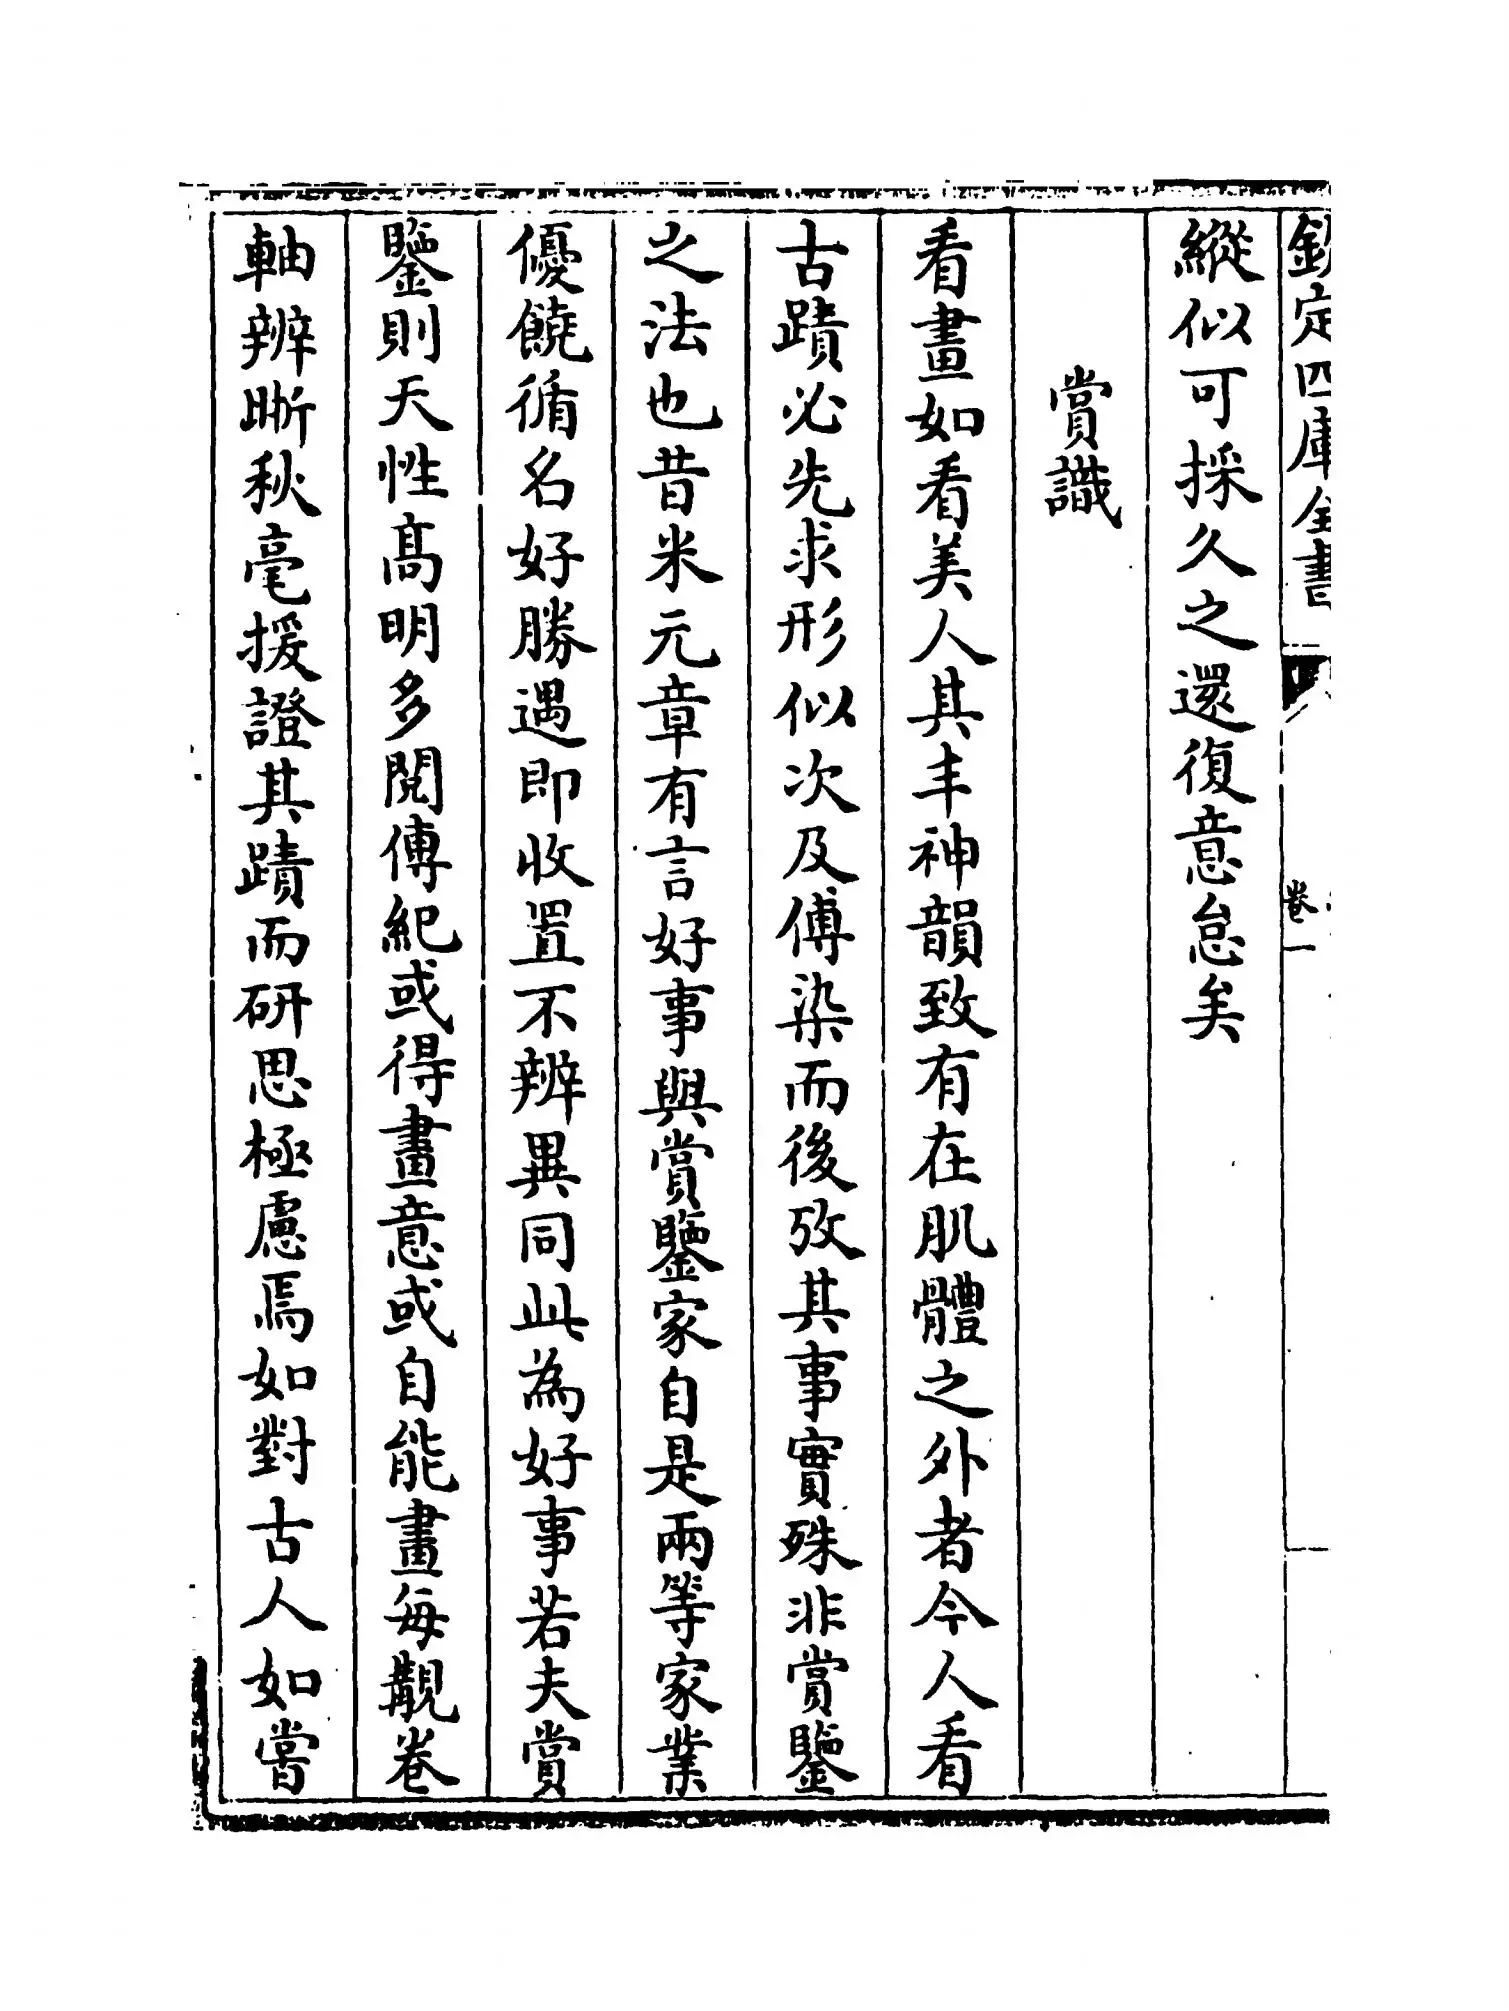 欽定四庫全書
卷一
縱似可採久之還復意怠矣
賞識
看畫如看美人其丰神韻致有在肌體之外者今人看
古蹟必先求形似次及傅染而後攷其事實殊非賞鑒
之法也昔米元章有言好事與賞鑒家自是兩等家業
優饒循名好勝遇即收置不辨異同此為好事若夫賞
鑒則天性高明多閱傳紀或得畫意或自能畫每覩卷
軸辨晣秋毫援證其蹟而研思極慮焉如對古人如嘗